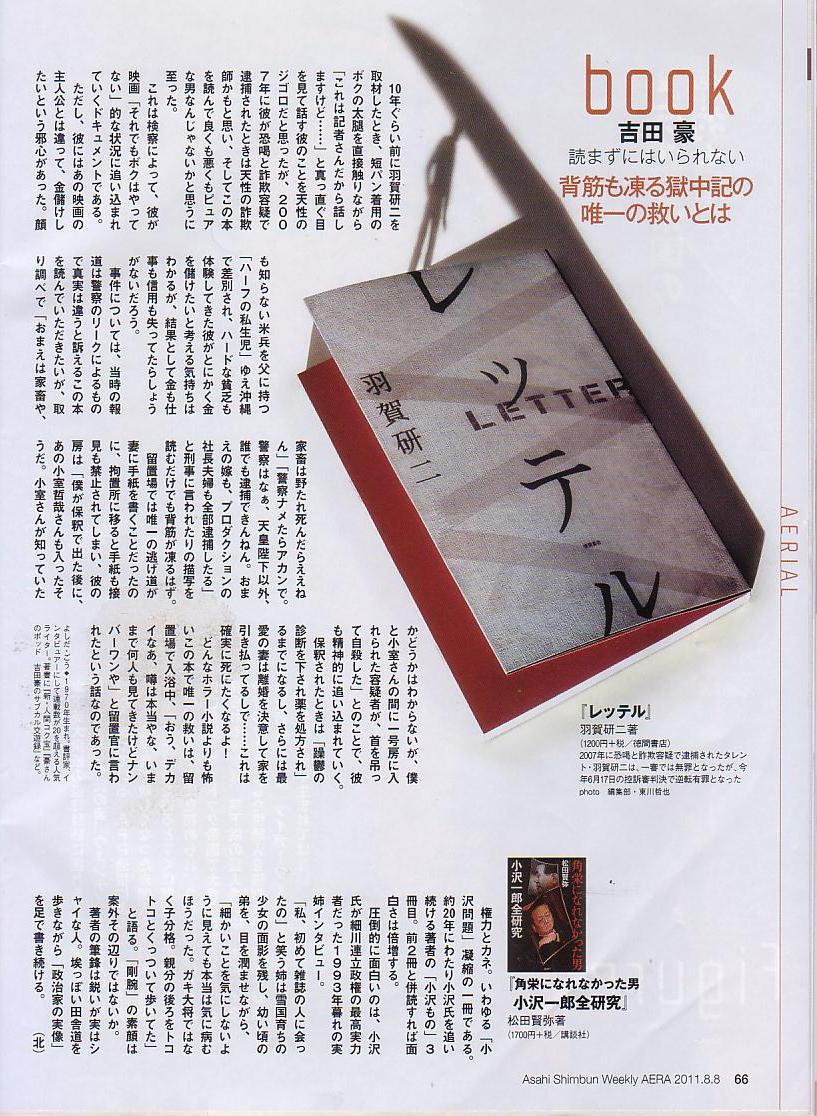 book
吉田 豪
読まずにはいられない
背筋も凍る獄中記の
唯一の救いとは
10年ぐらい前に羽賀研二を
取材したとき、短パン着用の
ボクの太腿を直接触りながら
「これは記者さんだから話し
ますけど……」と真っ直ぐ目
を見て話す彼のことを天性の
ジゴロだと思ったが、200
7年に彼が恐喝と詐欺容疑で
逮捕されたときは天性の詐欺
師かもと思い、そしてこの本
を読んで良くも悪くもピュア
な男なんじゃないかと思うに
至った。
これは検察によって、彼が
映画「それでもボクはやって
ない」的な状況に追い込まれ
ていくドキュメントである。
ただし、彼にはあの映画の
主人公とは違って、金儲けし
たいという邪心があった。顔
も知らない米兵を父に持つ
「ハーフの私生児」ゆえ沖縄
で差別され、ハードな貧乏も
体験してきた彼がとにかく金
を儲けたいと考える気持ちは
わかるが、結果として金も仕
事も信用も失ってたらしょう
がないだろう。
事件については、当時の報
道は警察のリークによるもの
で真実は違うと訴えるこの本
を読んでいただきたいが、取
り調べで「おまえは家畜や、
家畜は野たれ死んだらええね
ん」「警察ナメたらアカンで。
警察はなぁ、天皇陛下以外、
誰でも逮捕できんねん。おま
えの嫁も、プロダクションの
社長夫婦も全部逮捕したる」
と刑事に言われたりの描写を
読むだけでも背筋が凍るはず。
留置場では唯一の逃げ道が
妻に手紙を書くことだったの
に、拘置所に移ると手紙も接
見も禁止されてしまい、彼の
房は「僕が保釈で出た後に、
あの小室哲哉さんも入ったそ
うだ。小室さんが知っていた
かどうかはわからないが、僕
と小室さんの間に一号房に入
れられた容疑者が、首を吊っ
て自殺した」とのことで、彼
も精神的に追い込まれていく。
保釈されたときは「躁鬱の
診断を下され薬を処方され」
るまでになるし、さらには最
愛の妻は離婚を決意して家を
引き払ってるしで……これは
確実に死にたくなるよ！
どんなホラー小説よりも怖
いこの本で唯一の救いは、留
置場で入浴中、「おう、デカ
イなあ、噂は本当やな、いま
まで何人も見てきたけどナン
バーワンや」と留置官に言わ
れたという話なのであった。
よしだ・ごう◆1970年生まれ。書評家、イ
ンタビュアーにして連載数が20を超える人気
ライター。著書に『新・人間コク宝』『豪さん
のポッド 吉田豪のサブカル交遊録』など。
レッテル
LETTER
羽賀研二
AERIAL
『レッテル』
羽賀研二著
(1200円＋税／徳間書店)
2007年に恐喝と詐欺容疑で逮捕されたタレン
ト・羽賀研二は、一審では無罪となったが、今
年6月17日の控訴審判決で逆転有罪となった
photo 編集部・東川哲也
角栄になれなかった男
松田賢弥
小沢一郎全研究
『角栄になれなかった男
小沢一郎全研究』
松田賢弥著
(1700円＋税／講談社)
権力とカネ。いわゆる「小
沢問題」凝縮の一冊である。
約20年にわたり小沢氏を追い
続ける著者の「小沢もの」3
冊目。前2冊と併読すれば面
白さは倍増する。
圧倒的に面白いのは、小沢
氏が細川連立政権の最高実力
者だった1993年暮れの実
姉インタビュー。
「私、初めて雑誌の人に会っ
たの」と笑う姉は雪国育ちの
少女の面影を残し、幼い頃の
弟を、目を潤ませながら、
「細かいことを気にしないよ
うに見えても本当は気に病む
ほうだった。ガキ大将ではな
く子分格。親分の後ろをトコ
トコとくっついて歩いてた」
と語る。「剛腕」の素顔は
案外その辺りではないか。
著者の筆鋒は鋭いが実はシ
ャイな人。埃っぽい田舎道を
歩きながら「政治家の実像」
を足で書き続ける。 (北)
Asahi Shimbun Weekly AERA 2011.8.8 66